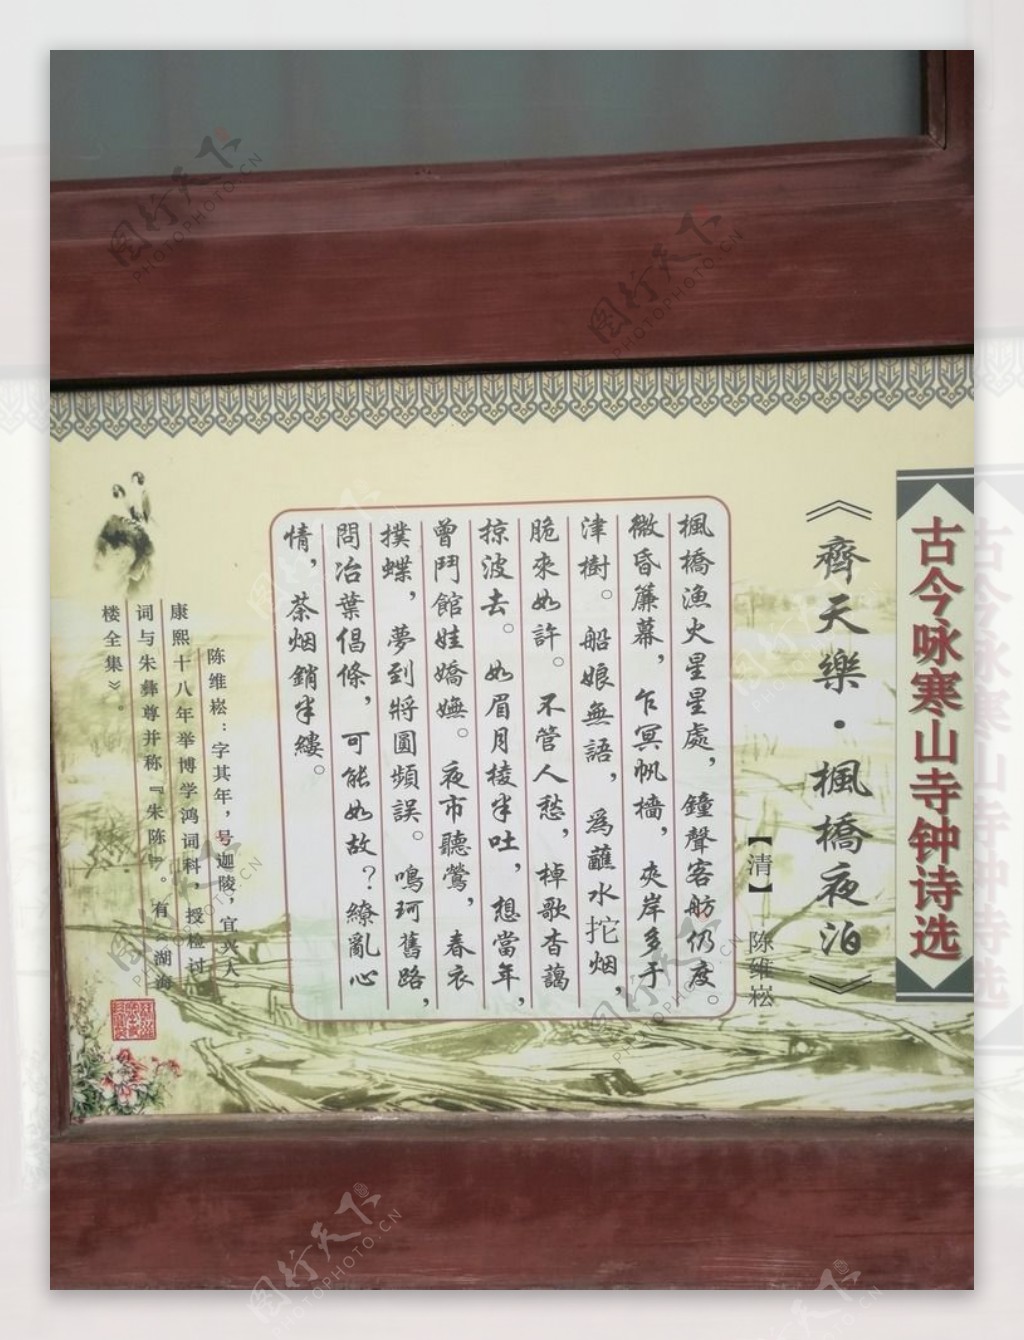 古今咏寒山寺钟诗选
《齊天樂·楓橋夜泊》
【清】 陈维崧
楓橋漁火星星處，鐘聲客舫仍度。
微昏簾幕，乍冥帆檣，夾岸多于
津樹。船娘無語，為蘸水拕烟，
脆來如許。不管人愁，棹歌杳藹
掠波去。如眉月棱半吐，想當年，
曾鬥館娃嬌嫵。夜市聽鶯，春衣
撲蝶，夢到將圓頻誤。鳴珂舊路，
問冶葉倡條，可能如故？繚亂心
情，茶烟銷半縷。
陈维崧：字其年，号迦陵，宜兴人
康熙十八年举博学鸿词科，授检讨
词与朱彝尊并称『朱陈』。有《湖海
楼全集》。
图行天下
PHOTOPHOTO.CN